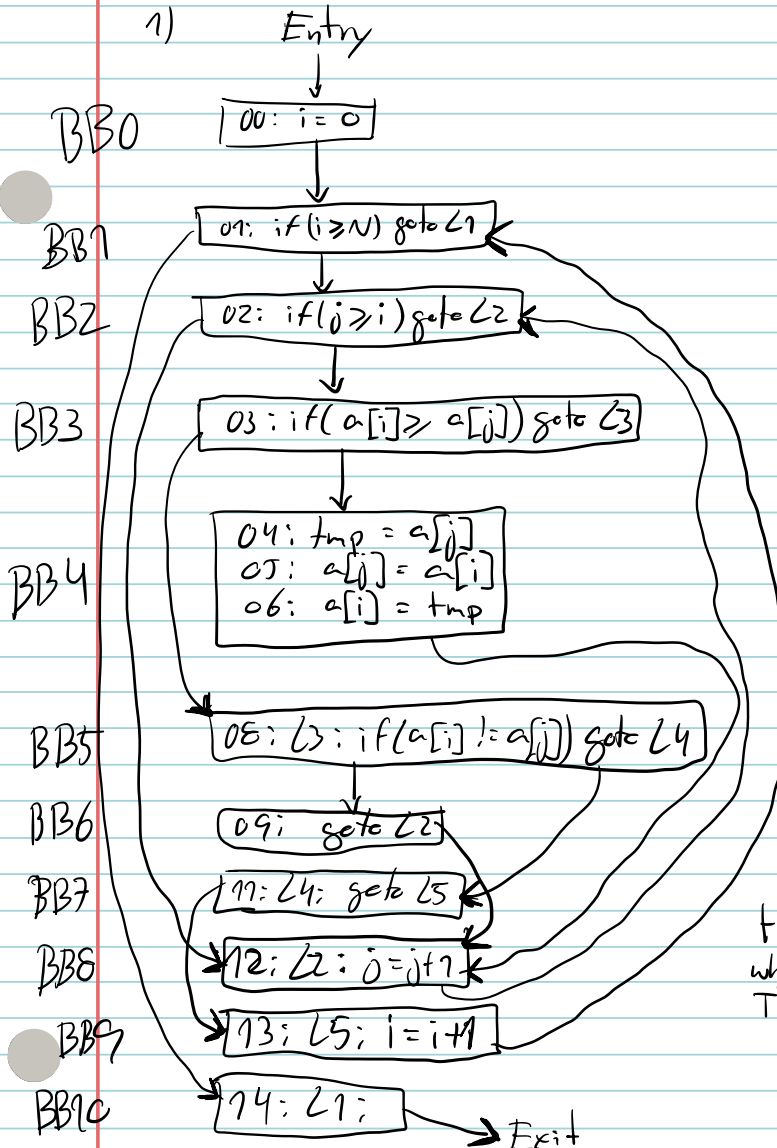 1) Entry
BB0 00: i = 0
BB1 01: if(i≥N) goto L1
BB2 02: if(j≥i) goto L2
BB3 03: if(a[i]≥ a[j]) goto L3
04: tmp = a[j]
BB4 05: a[j] = a[i]
06: a[i] = tmp
BB5 08: L3: if(a[i] != a[j]) goto L4
BB6 09: goto L2
BB7 11: L4: goto L5
BB8 12: L2: j=j+1
wh
BB9 13: L5: i=i+1 T
BB10 14: L1:
Exit